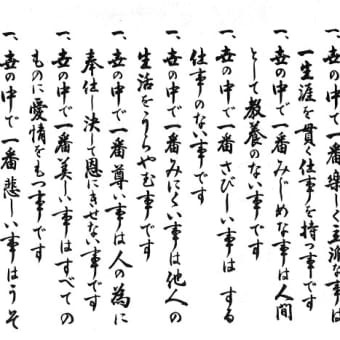 一、世の中で一番楽しく立派な事は
一生涯を貫く仕事を持つ事です
一、世の中で一番みじめな事は人間
として教養のない事です
一、世の中で一番さびしい事はする
仕事のない事です
一、世の中で一番みにくい事は他人の
生活をうらやむ事です
一、世の中で一番尊い事は人の為に
奉仕し決して恩にきせない事です
一、世の中で一番美しい事はすべての
ものに愛情をもつ事です
一、世の中で一番悲しい事はうそ